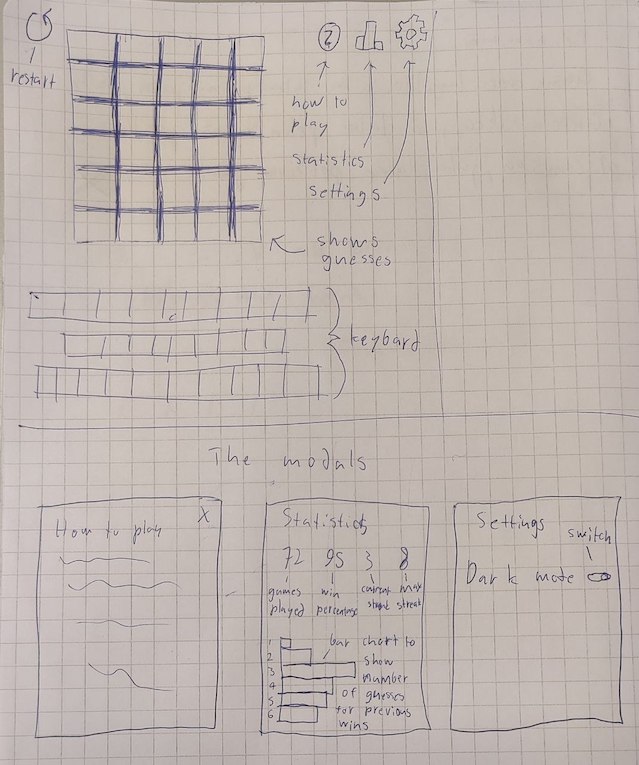 ?
restart
how to
play
statistics
settings
shows
guesses
keybard
The modals
How to play X
Statistics
72 95 3 8
games win current max
played percentage streak streak
1
2
3
4
5
6
bar chart to
show
number
of guesses
for previous
wins
Settings
switch
Dark mode